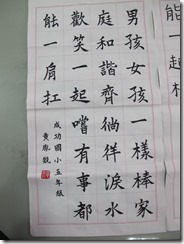 能一起
男孩女孩一樣棒家
庭和諧齊徜徉淚水
歡笑一起嚐有事都
能一肩扛
成功國小五年級
黃